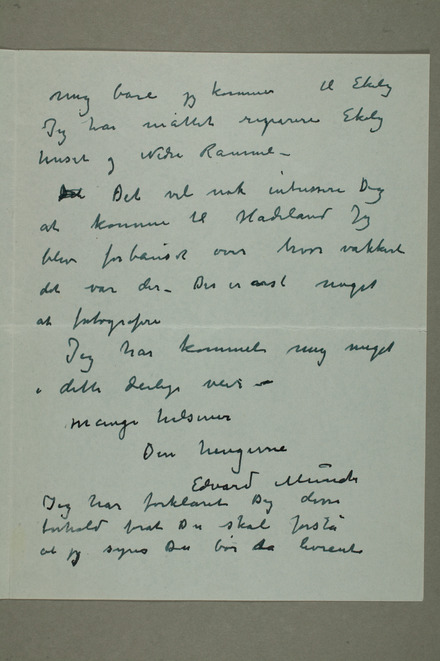 mig bare jeg kommer til Ekely
Jeg har måttet reparere Ekely
huset og Nedre Ramme –
Det vil nok intressere Dig
at komme til Hadeland Jeg
blev forbauset over hvor vakkert
det var der – Der er også meget
at fotografere
Jeg har kommet mig meget
i dette deilige veir –
Mange hilsener
Din hengivne
Edvard Munch
Jeg har forklaret Dig disse
forhold forat Du skal forstå
at jeg synes Du bør